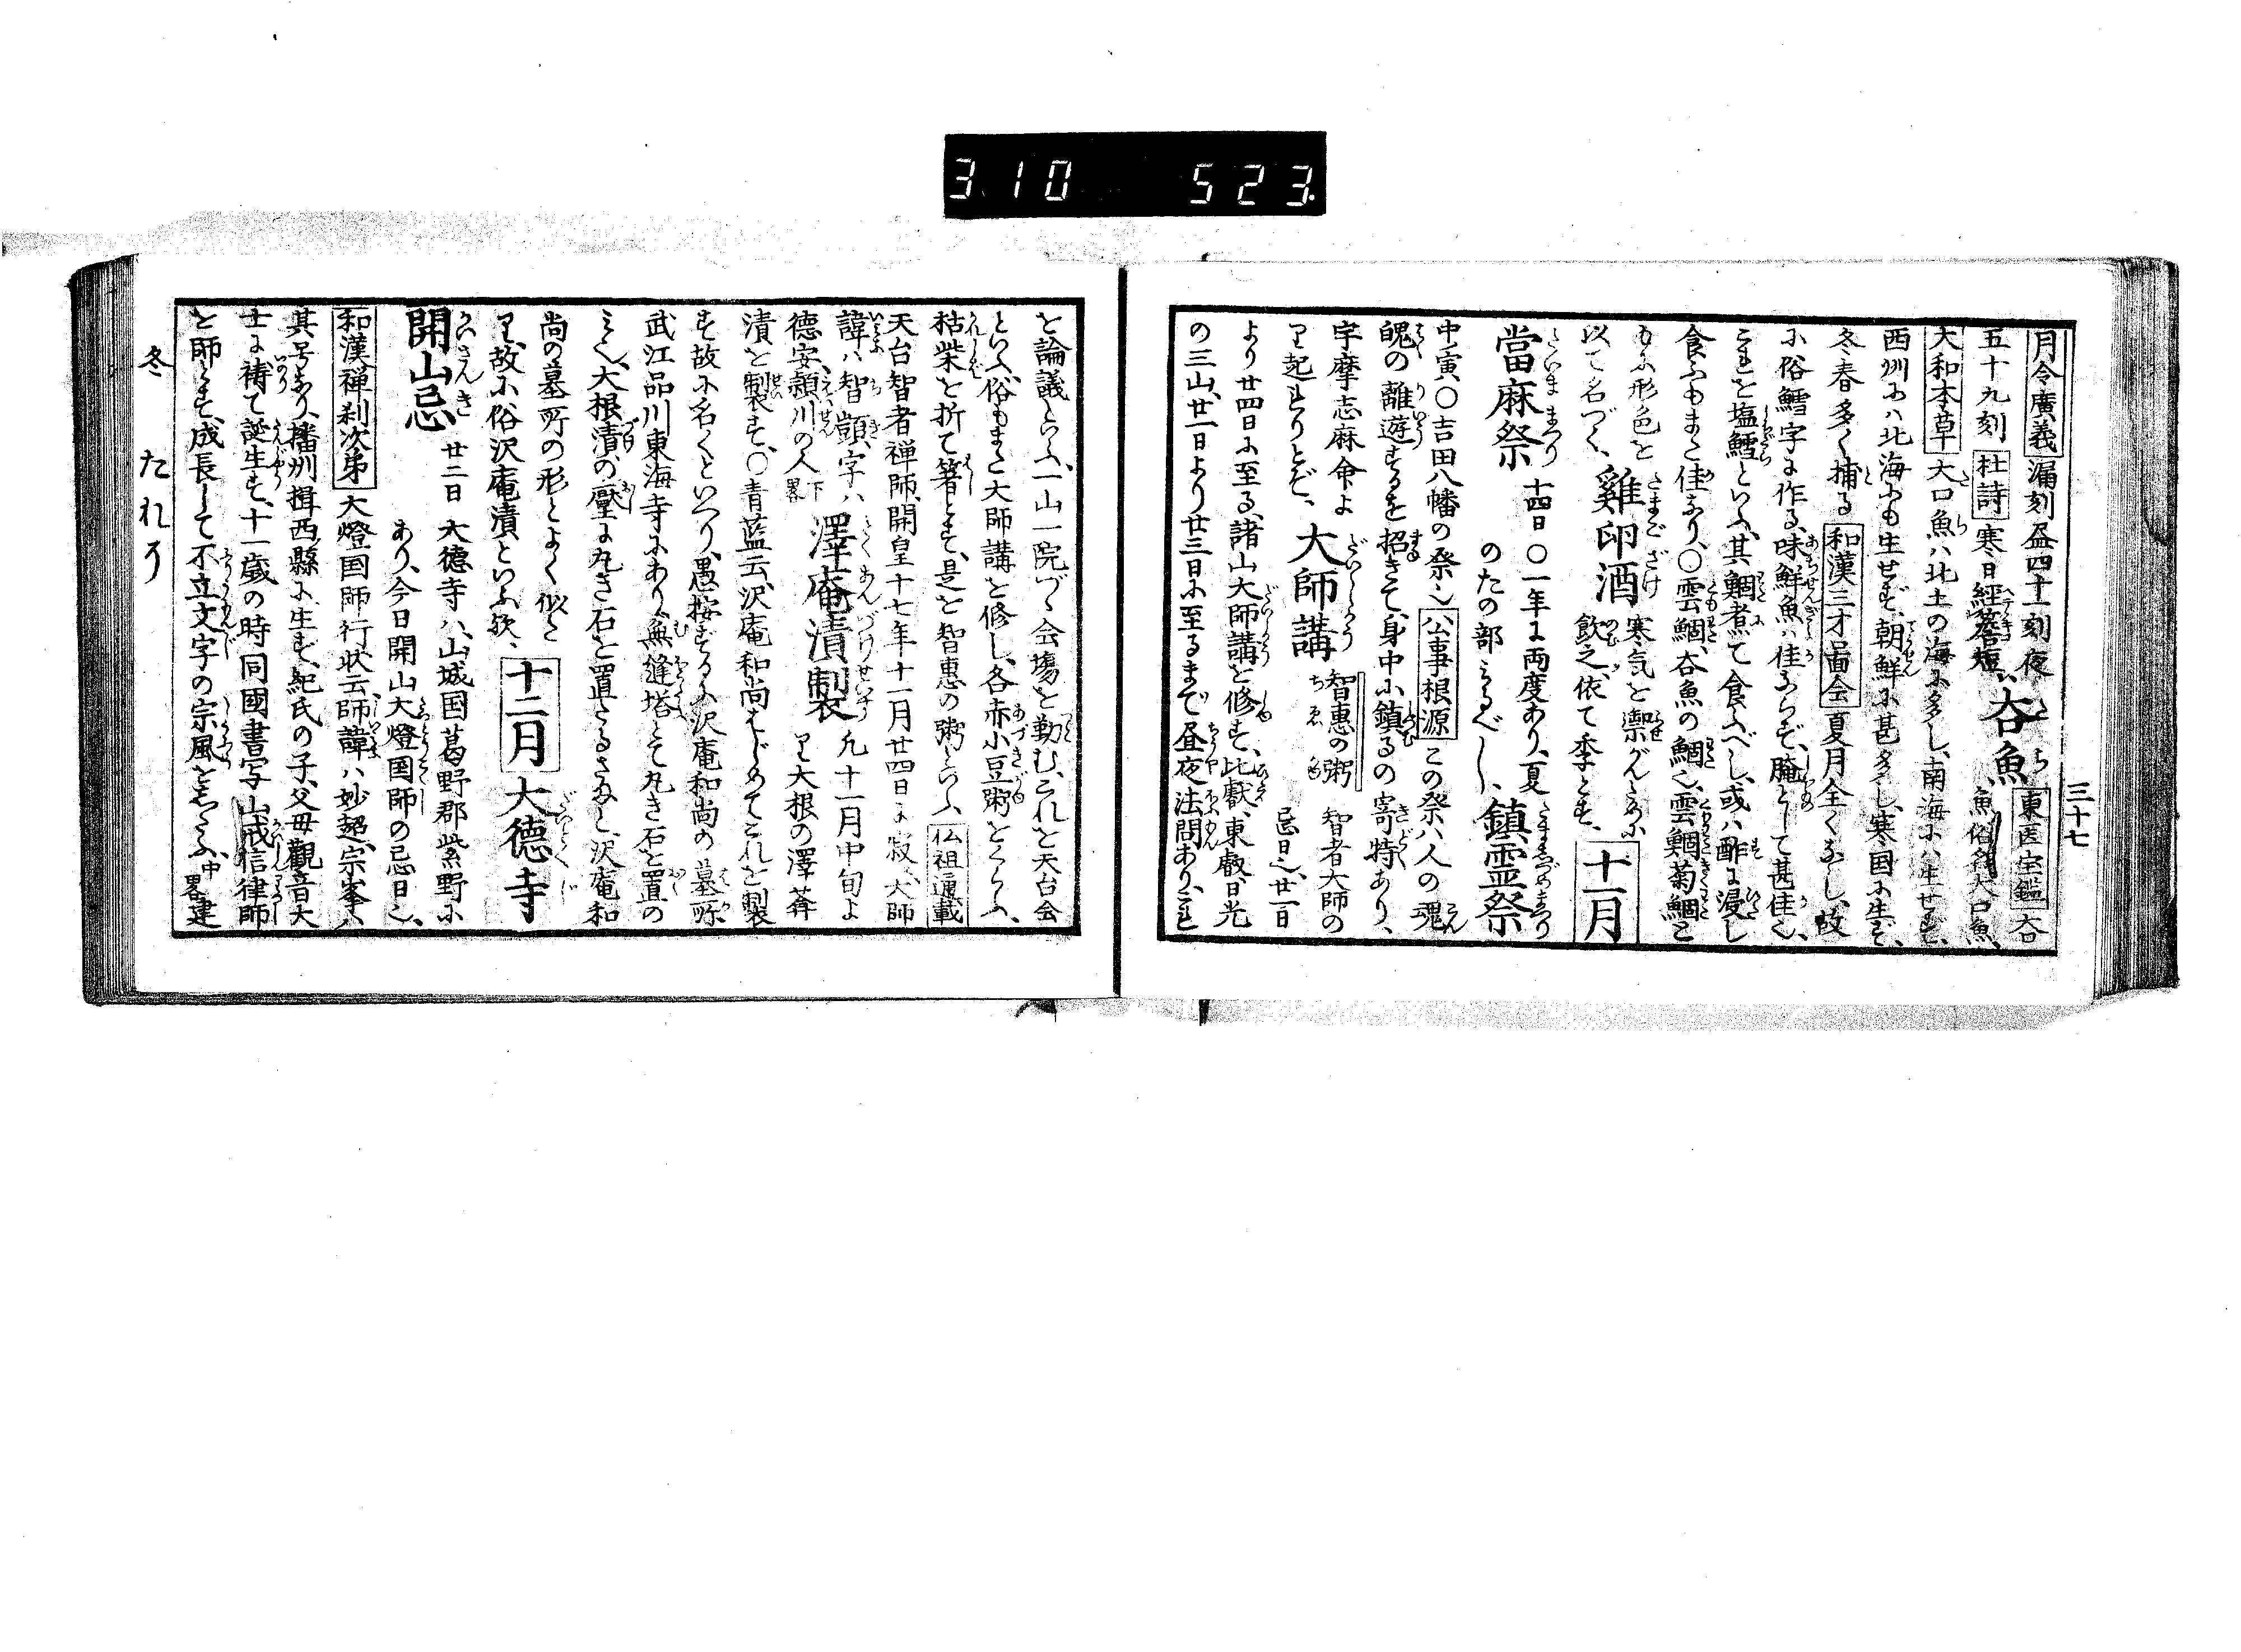 3.10 523.
三十七
月令廣義 漏刻昼四十一刻夜
五十九刻 杜詩 寒日経簷短 夻魚 東医宝鑑 夻魚俗名大口魚、
大和本草 大口魚ハ北土の海に多し、南海にハ生せず、
西州にハ北海にも生せず、朝鮮に甚多し、寒国に生ず、
冬春多く捕る 和漢三才啚会 夏月全くなし、故
に俗鱈字に作る、味鮮魚ハ佳ならず、腌として甚佳也、
これを塩鱈といふ、其鯝煮て食ふべし、或ハ酢に浸し
食ふもまた佳なり、〇雲鯝、夻魚の鯝也、雲鯝菊鯝と
もに形色を
以て名づく、 雞卵酒 寒気を禦がんために
飲之、依て季とす、 十一月
當麻祭 十四日〇一年に両度あり、夏
のたの部みるべし、 鎮霊祭
中寅、〇吉田八幡の祭也 公事根源 この祭ハ人の魂
魄の離遊するを招きて、身中に鎮るの寄特あり、
宇摩志麻命よ
り起れりとぞ、 大師講 智惠の粥 智者大師の
忌日也、廿一日
より廿四日に至る、諸山大師講を修す、比叡、東叡、日光
の三山、廿一日より廿三日に至るまで昼夜法問あり、これ
を論議といふ、一山一院づゝ会場を勤む、これを天台会
といふ、俗もまた大師講を修し、各赤小豆粥をくらふ、
枯柴を折て箸とす、是を智惠の粥といふ 仏祖通載
天台智者禅師、開皇十七年十一月廿四日に寂、大師
諱ハ智顗、字ハ
德安、頴川の人下畧 澤庵漬製 凡十一月中旬よ
り大根の澤菴
漬を製す、〇青藍云、沢庵和尚はじめてこれを製
す故に名くといへり、愚按ずるに沢庵和尚の墓所
武江品川東海寺にあり、無縫塔とて丸き石を置の
み也、大根漬の壓に丸き石を置たるさまなし、沢庵和
尚の墓所の形とよく似た
り、故に俗沢庵漬といふ歟、 十二月 大德寺
開山忌 廿二日 大德寺ハ、山城国葛野郡紫野に
あり、今日開山大燈国師の忌日也、
和漢禅刹次第 大燈国師行状云、師諱ハ妙超、宗峯ハ
其号なり、播州揖西縣に生ず、紀氏の子、父母觀音大
士に祷て誕生す、十一歳の時同國書写山戒信律師
を師とす、成長して不立文字の宗風をしたふ、中畧建
冬 たれそ